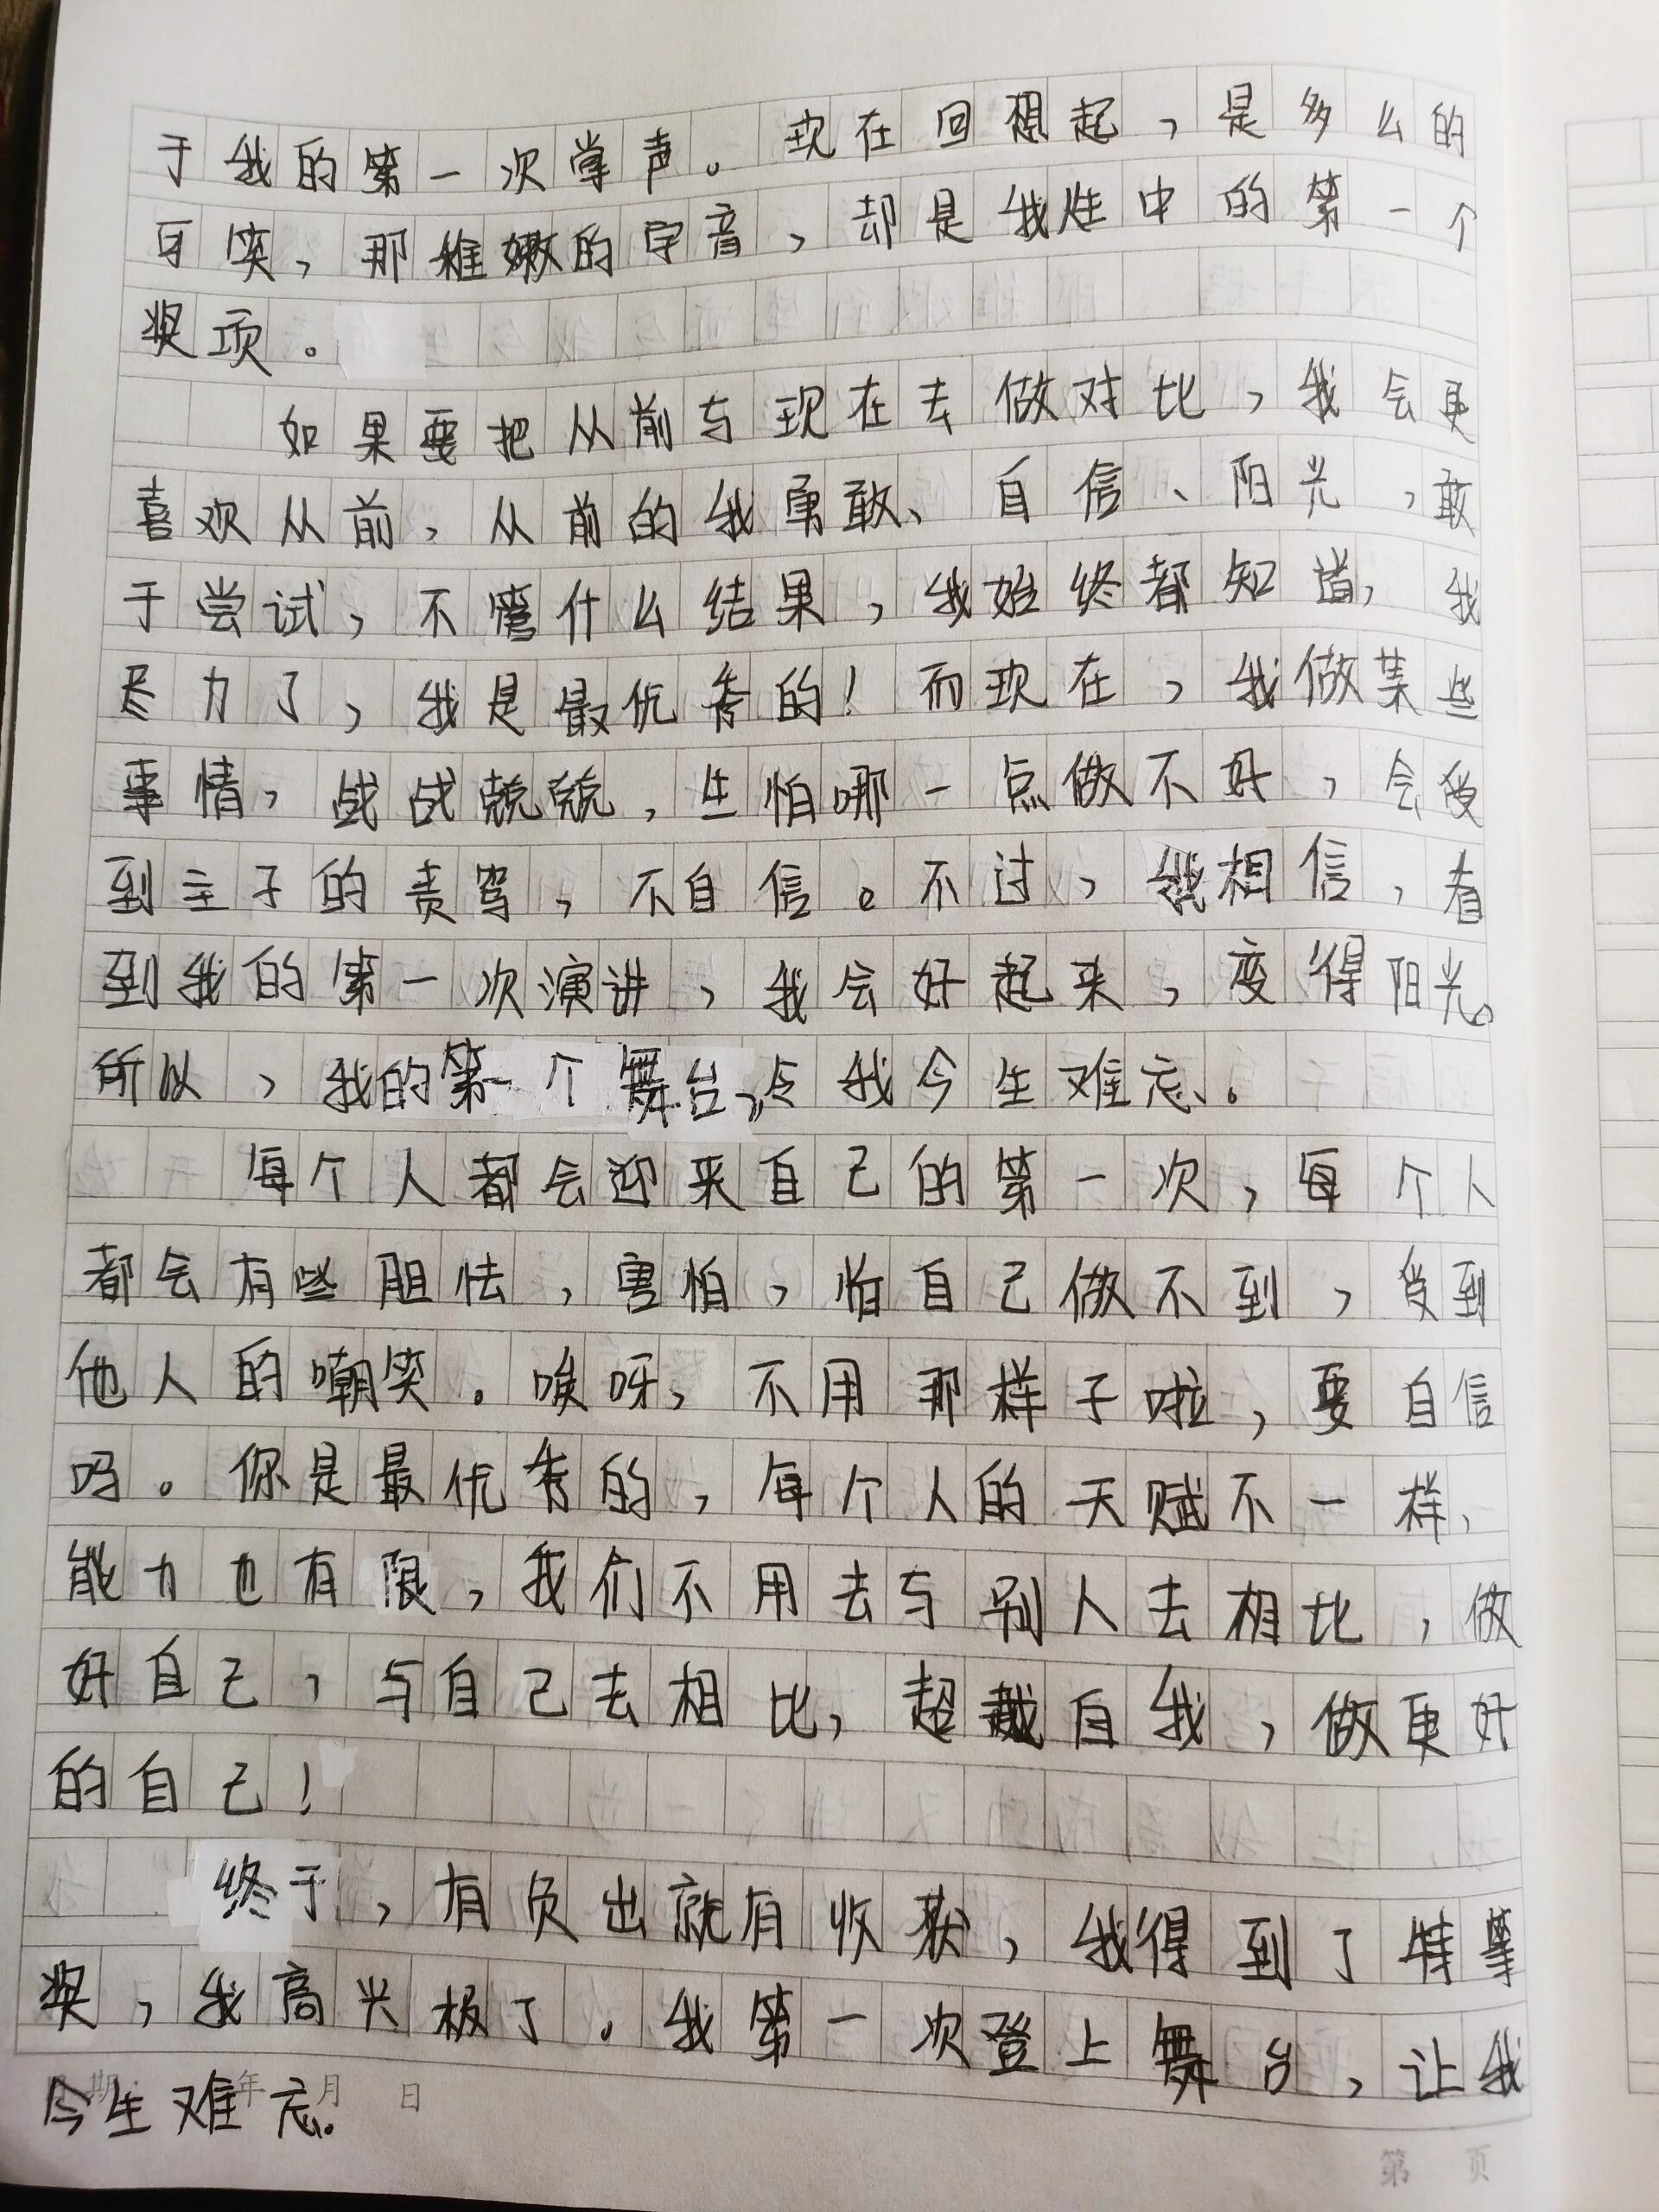 于我的第一次掌声。现在回想起，是多么的
可笑，那稚嫩的字音，却是我生中的第一个
奖项。
如果要把从前与现在去做对比，我会更
喜欢从前，从前的我勇敢、自信、阳光，敢
于尝试，不管什么结果，我始终都知道，我
尽力了，我是最优秀的！而现在，我做某些
事情，战战兢兢，生怕哪一点做不好，会受
到主子的责骂，不自信。不过，我相信，看
到我的第一次演讲，我会好起来，变得阳光。
所以，我的第一个舞台，令我今生难忘。
每个人都会迎来自己的第一次，每个人
都会有些胆怯，害怕，怕自己做不到，受到
他人的嘲笑。唉呀，不用那样子啦，要自信
吗。你是最优秀的，每个人的天赋不一样，
能力也有限，我们不用去与别人去相比，做
好自己，与自己去相比，超越自我，做更好
的自己！
终于，有负出就有收获，我得到了特等
奖，我高兴极了。我第一次登上舞台，让我
今生难忘。
年 月 日
第 页